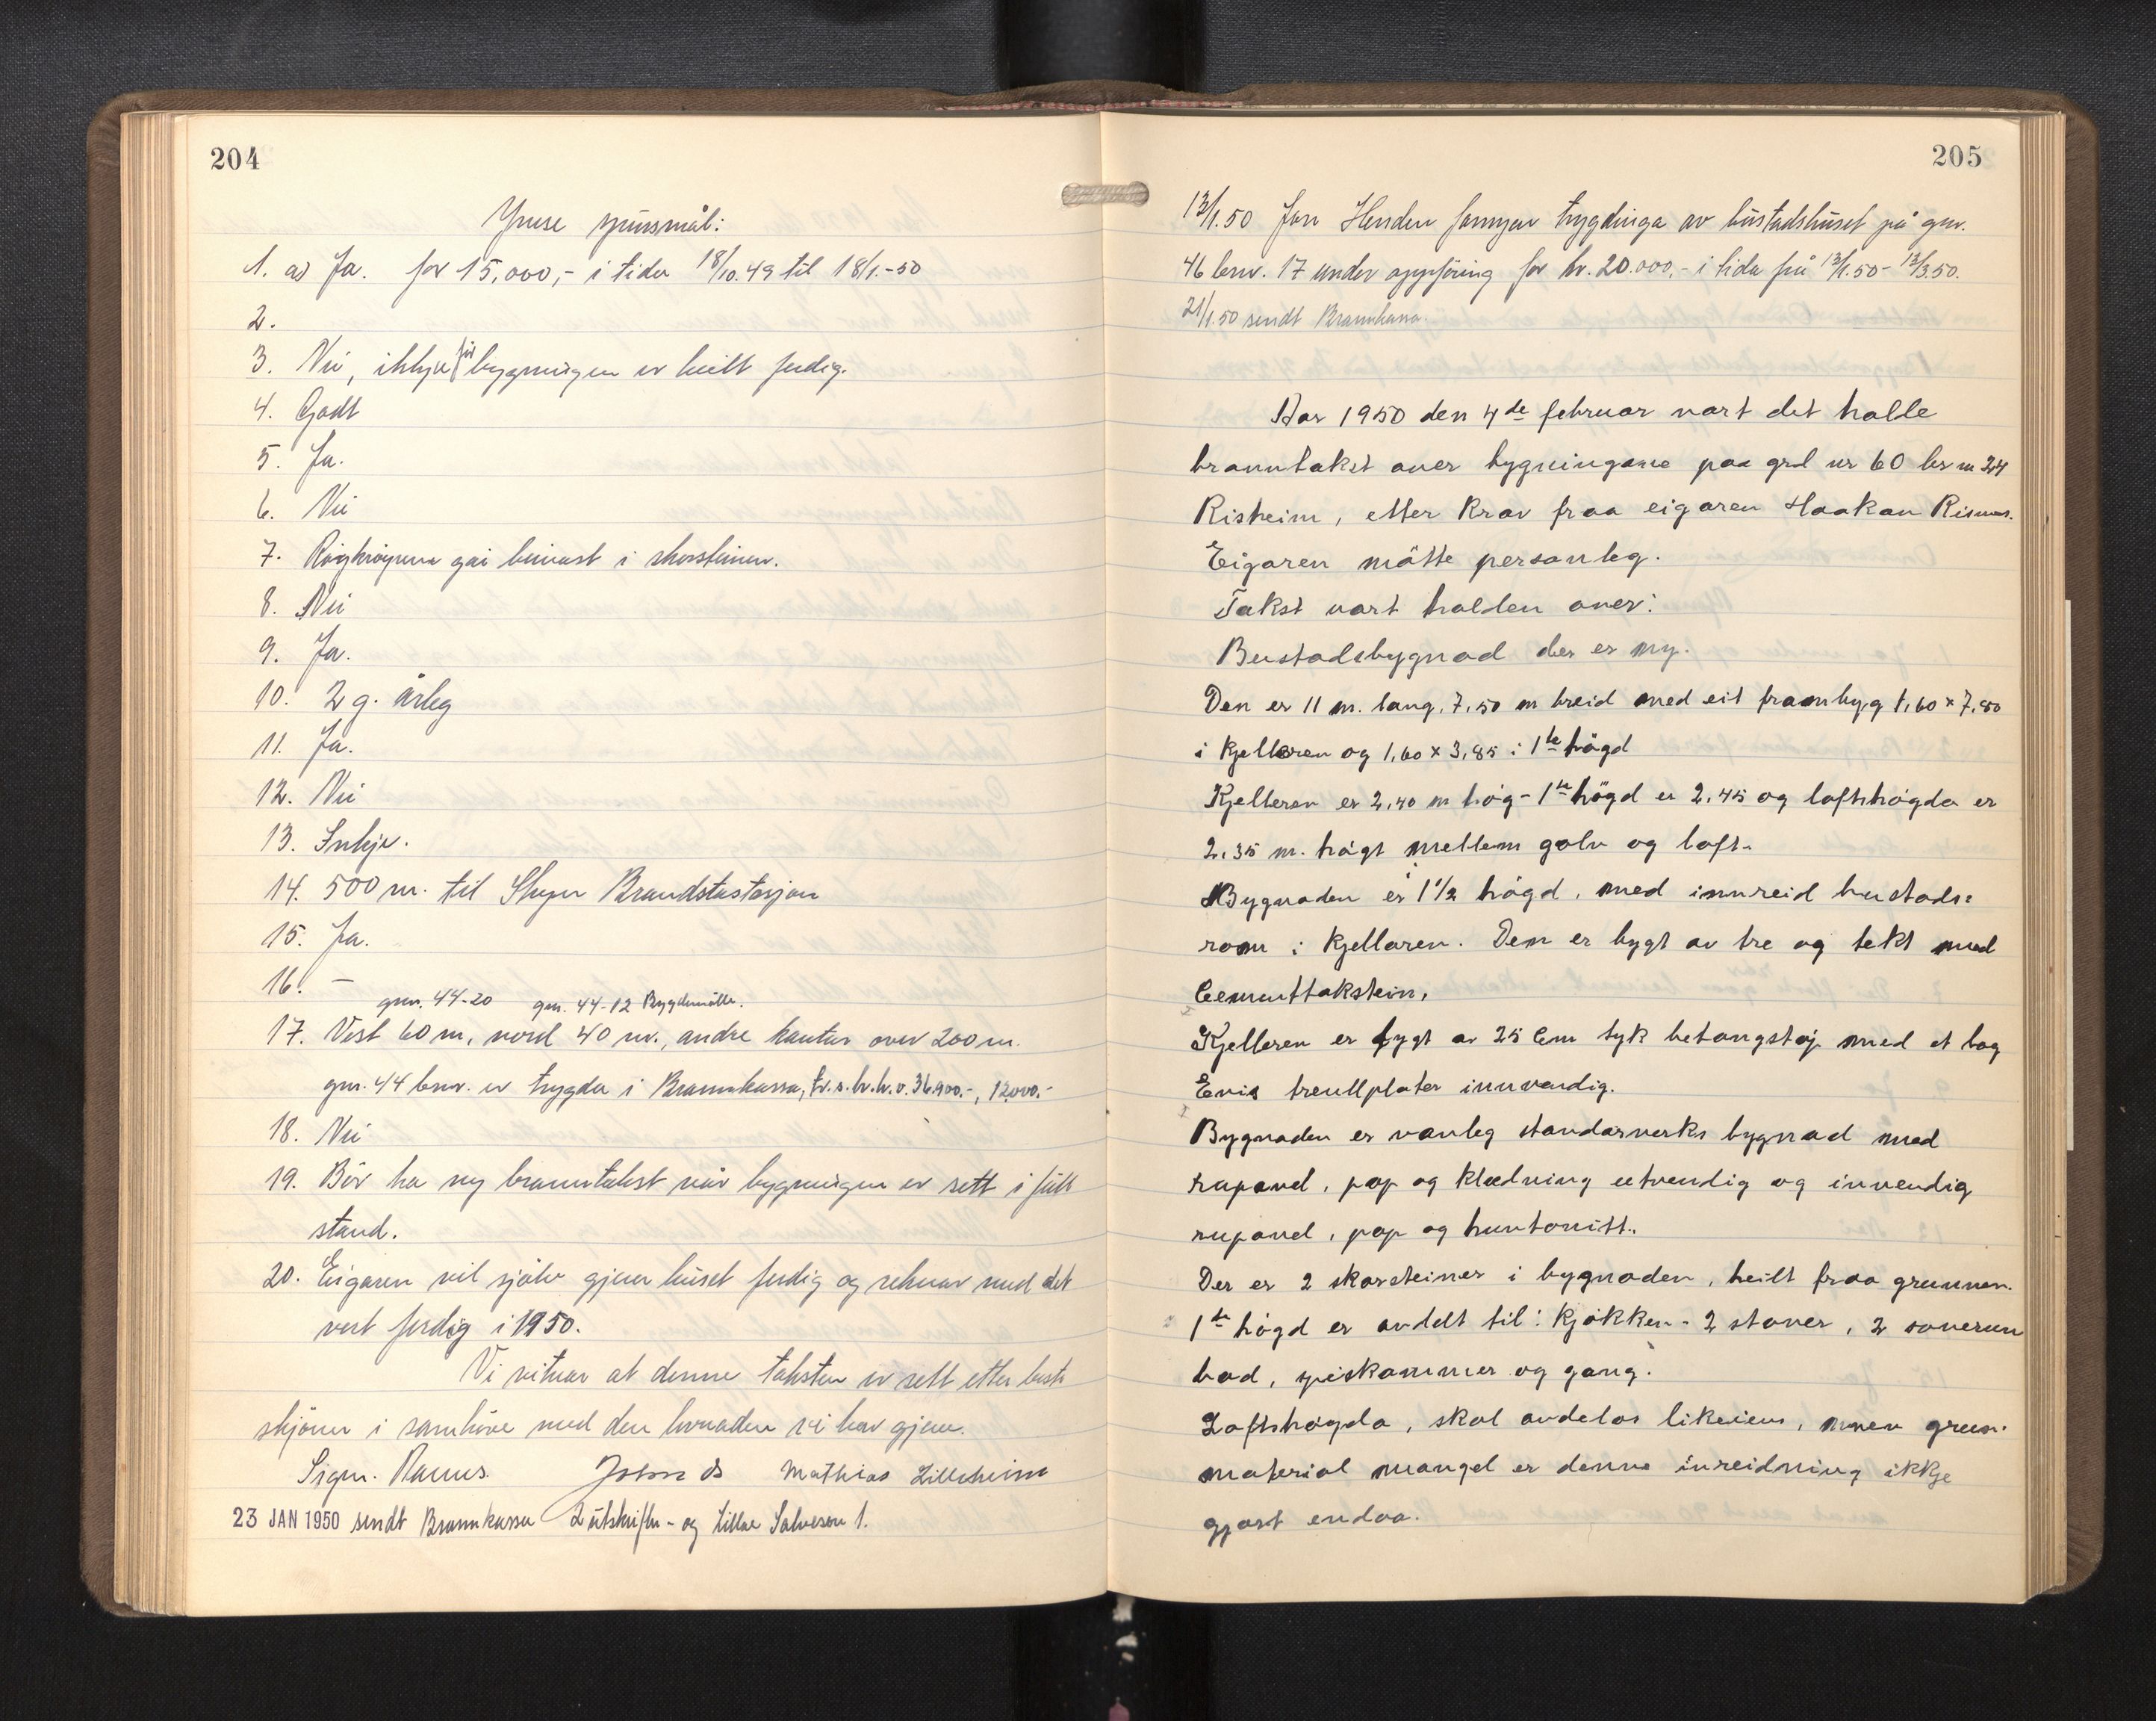 204
Ymse spursmål:
1. a) Ja. for 15.000,- i tida 18/10.49 til 18/1.-50
2.
3. Nei, ikkje før bygningen er heilt ferdig.
4. Godt
5. Ja.
6. Nei
7. Røykrøyrene går beinast i skorsteinen.
8. Nei
9. Ja.
10. 2 g. årleg
11. Ja.
12. Nei
13. Inkje.
14. 500 m. til Brandstastasjon
15. Ja.
16. -
gnr. 44-20 gnr. 44-12 Bygdemølle.
17. Vest 60 m, nord 40 m., andre kantar over 200 m.
gnr. 44 bnr. er trygda i Brannkassa, 36.900.-, 12.000.-
18. Nei
19. Bør ha ny branntakst når bygningen er sett i full
stand.
20. Eigaren vil sjølv gjera huset ferdig og reknar med det
vert ferdig i 1950.
Vi vitnar at denne taksten er sett etter beste
skjønn i samhøve med den lovnaden vi hev gjeve.
Sigm. Ramus. Mathias Lillesheim
23 JAN 1950 sendt Brannkassa 2 utskrifter - og
205
13/1.50 Jon Henden fornyar trygdinga av bustadshuset på gnr.
46 bnr. 17 under oppføring for kr. 20.000,- i tida frå 13/1.50 - 13/3.50.
21/1.50 sendt Brannkassa.
Aar 1950 den 4de februar vart det halle
branntakst over bygningane paa grd nr 60 br n 24
Risheim, etter krav fraa eigaren Haakon Risnes.
Eigaren møtte personleg.
Takst vart halden over:
Bustadsbygnad der er ny.
Den er 11 m. lang, 7,50 m breid med eit frambyg 1,60 x 7,50
i kjelleren og 1,60 x 3,85 i 1ste høgd
Kjelleren er 2,40 m høg - 1ste høgd er 2,45 og loftshøgda er
2,35 m. høgt mellem golv og loft.
Bygnaden er 1 1/2 høgd, med innreid bustads=
rom i kjellaren. Den er bygt av tre og tekt med
Cementtakstein,
Kjelleren er bygt av 25 Cem tyk betongstøp med et lag
treullplater innvendig.
Bygnaden er vanleg standarverks bygnad med
rupanel, pap og klædning utvendig og invendig
rupanel, pap og huntonitt.
Der er 2 skorsteiner i bygnaden, heilt fraa grunnen.
1ste høgd er avdelt til: Kjøkken - 2 stover, 2 soverum
bad, spiskammer og gang.
Loftshøgda, skal avdelas likeeins, men grun.
material mangel er denne inreidning ikkje
gjort endaa.